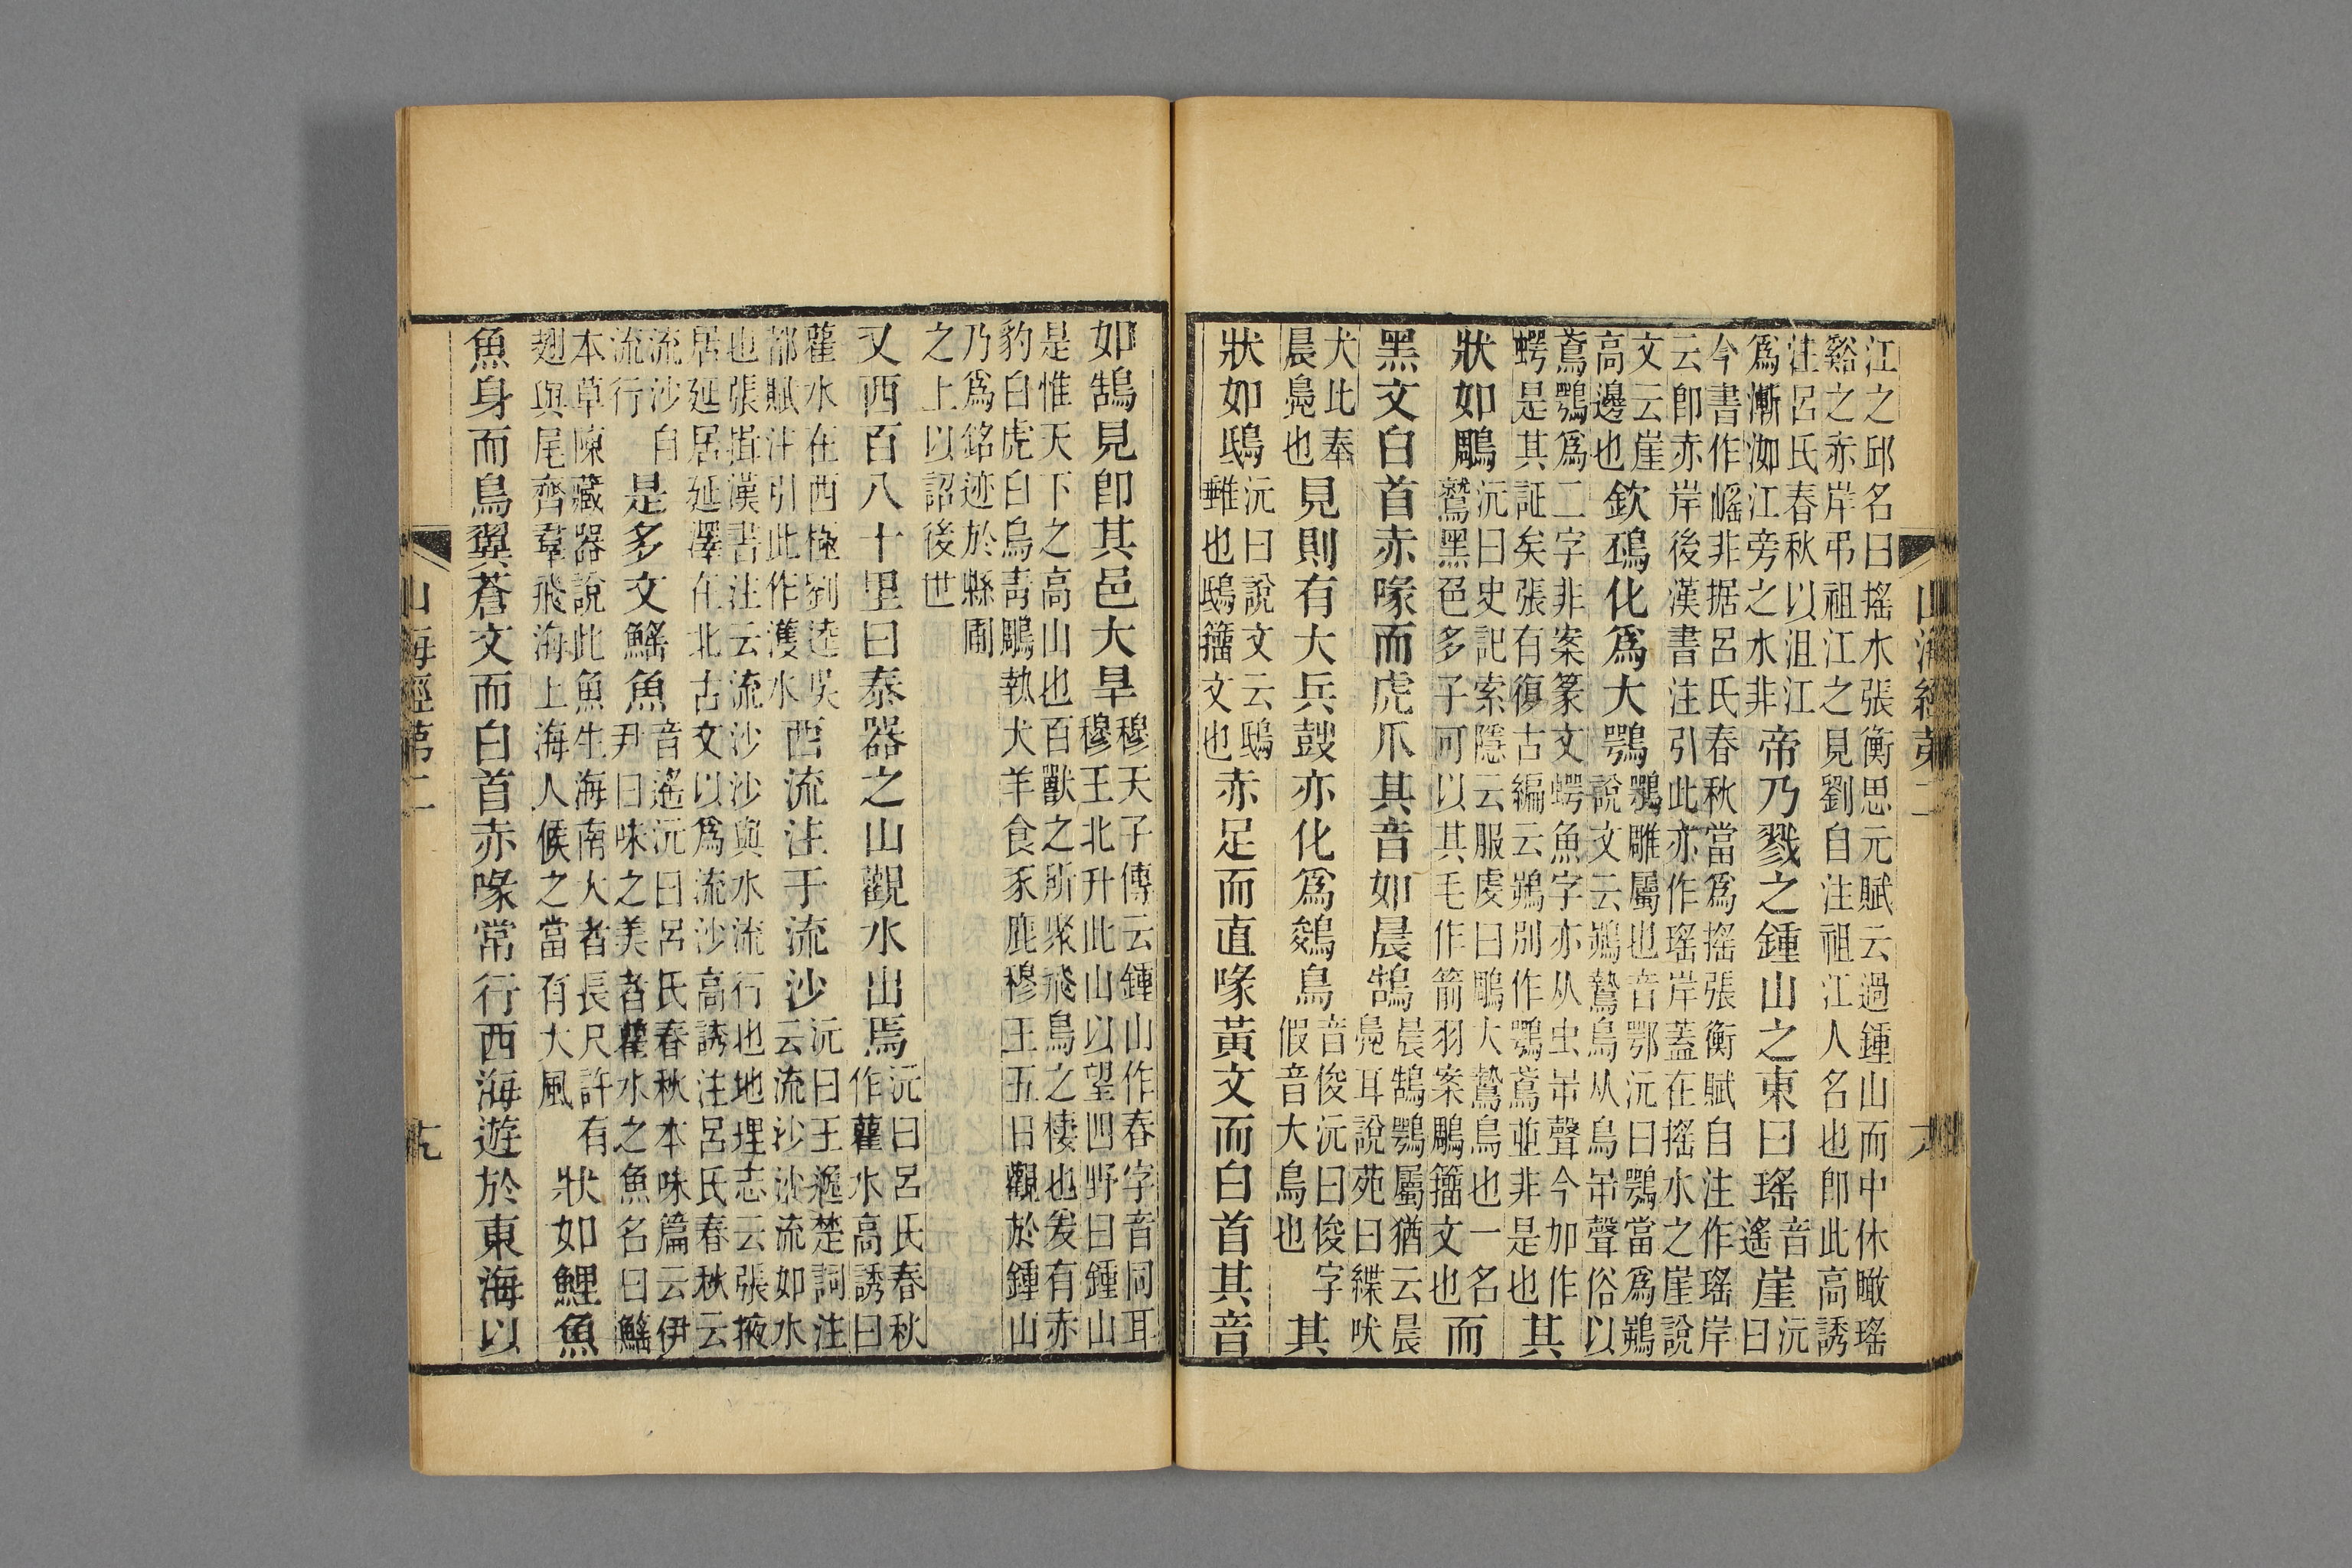 山海經第二
江之邱名曰搖水張衡思元賦云過鍾山而中休瞰瑤
谿之赤岸弔祖江之見劉自注祖江人名也卽此高誘
注呂氏春秋以沮江
爲漸洳江旁之水非
帝乃戮之鍾山之東曰瑤
音
遙
崖
沅
曰
今書作㟱非据呂氏春秋當爲搖張衡賦自注作瑤岸
云卽赤岸後漢書注引此亦作瑤岸蓋在搖水之崖說
文云崖
高邊也
欽䲹化爲大鶚
鶚雕屬也音鄂沅曰鶚當爲
說文云鷙鳥从鳥屰聲俗以
鳶鶚爲二字非案篆文蝉魚字亦从虫屰聲今加作
蝉是其証矣張有復古編云別作鶚鳶並非是也
其
狀如鵰
沅曰史記索隱云服虔曰鵰大鷙鳥也一名
鷲黑色多子可以其毛作箭羽案鵰籀文也
而
黑文白首赤喙而虎爪其音如晨鵠
晨鵠鶚屬猶云晨
鳧耳說苑曰緤吠
犬比奉
晨鳧也
見則有大兵鼓亦化爲鵕鳥
音俊沅曰俊字
假音大鳥也
其
狀如鴟
沅曰說文云鴟
雖也鴟籀文也
赤足而直喙黃文而白首其音
如鵠見卽其邑大旱
穆天子傳云鍾山作春字音同耳
穆王北升此山以望四野曰鍾山
是惟天下之高山也百獸之所聚飛鳥之棲也爰有赤
豹白虎白鳥靑鵰執犬羊食豕鹿穆王五日觀於鍾山
乃爲銘迹於縣圃
之上以詔後世
又西百八十里曰泰器之山觀水出焉
沅曰呂氏春秋
作雚水高誘曰
雚水在西極劉逵吳
都賦注引此作濩水
西流注于流沙
沅曰王逸楚詞注
云流沙沙流如水
也張揖漢書注云流沙沙與水流行也地理志云張掖
居延居延澤在北古文以爲流沙高誘注呂氏春秋云
流沙自
流行
是多文鰩魚
音遙沅曰呂氏春秋本味篇云伊
尹曰味之美者雚水之魚名曰鰩
本草陳藏器說此魚生海南大者長尺許有
翅與尾齊羣飛海上海人候之當有大風
狀如鯉魚
魚身而鳥翼蒼文而白首赤喙常行西海遊於東海以
山海經第二